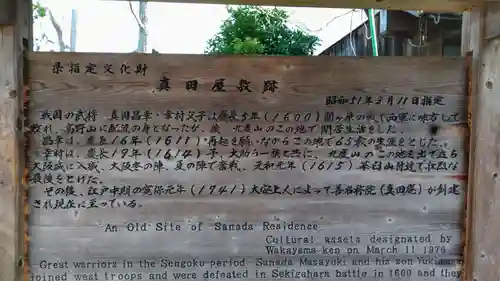 県指定文化財
真田屋敷跡
昭和51年3月11日指定
戦国の武将 真田昌幸・幸村父子は慶長5年（1600）関ヶ原の戦で西軍に味方して
敗れ、高野山に配流の身となったが、後 九度山のこの地で閑居生活をした。
昌幸は、慶長16年（1611）再起を願いながらこの地で65歳の生涯をとじた。
幸村は、慶長19年（1614）子、大助ら一族と共に、九度山のこの地を出て立ち
大阪城に入城、大阪冬の陣、夏の陣で奮戦、元和元年（1615）茶臼山付近で壮烈な
最後をとげた。
その後、江戸中期の寛保元年（1741）大安上人によって善名称院（真田庵）が創建
され現在に至っている。
An Old Site of Sanada Residence
Cultural assets designated by
Wakayama-ken on March 11 1976
Great warriors in the Sengoku period Sanada Masayuki and his son Yukimura
joined west troops and were defeated in Sekigahara battle in 1600 and they